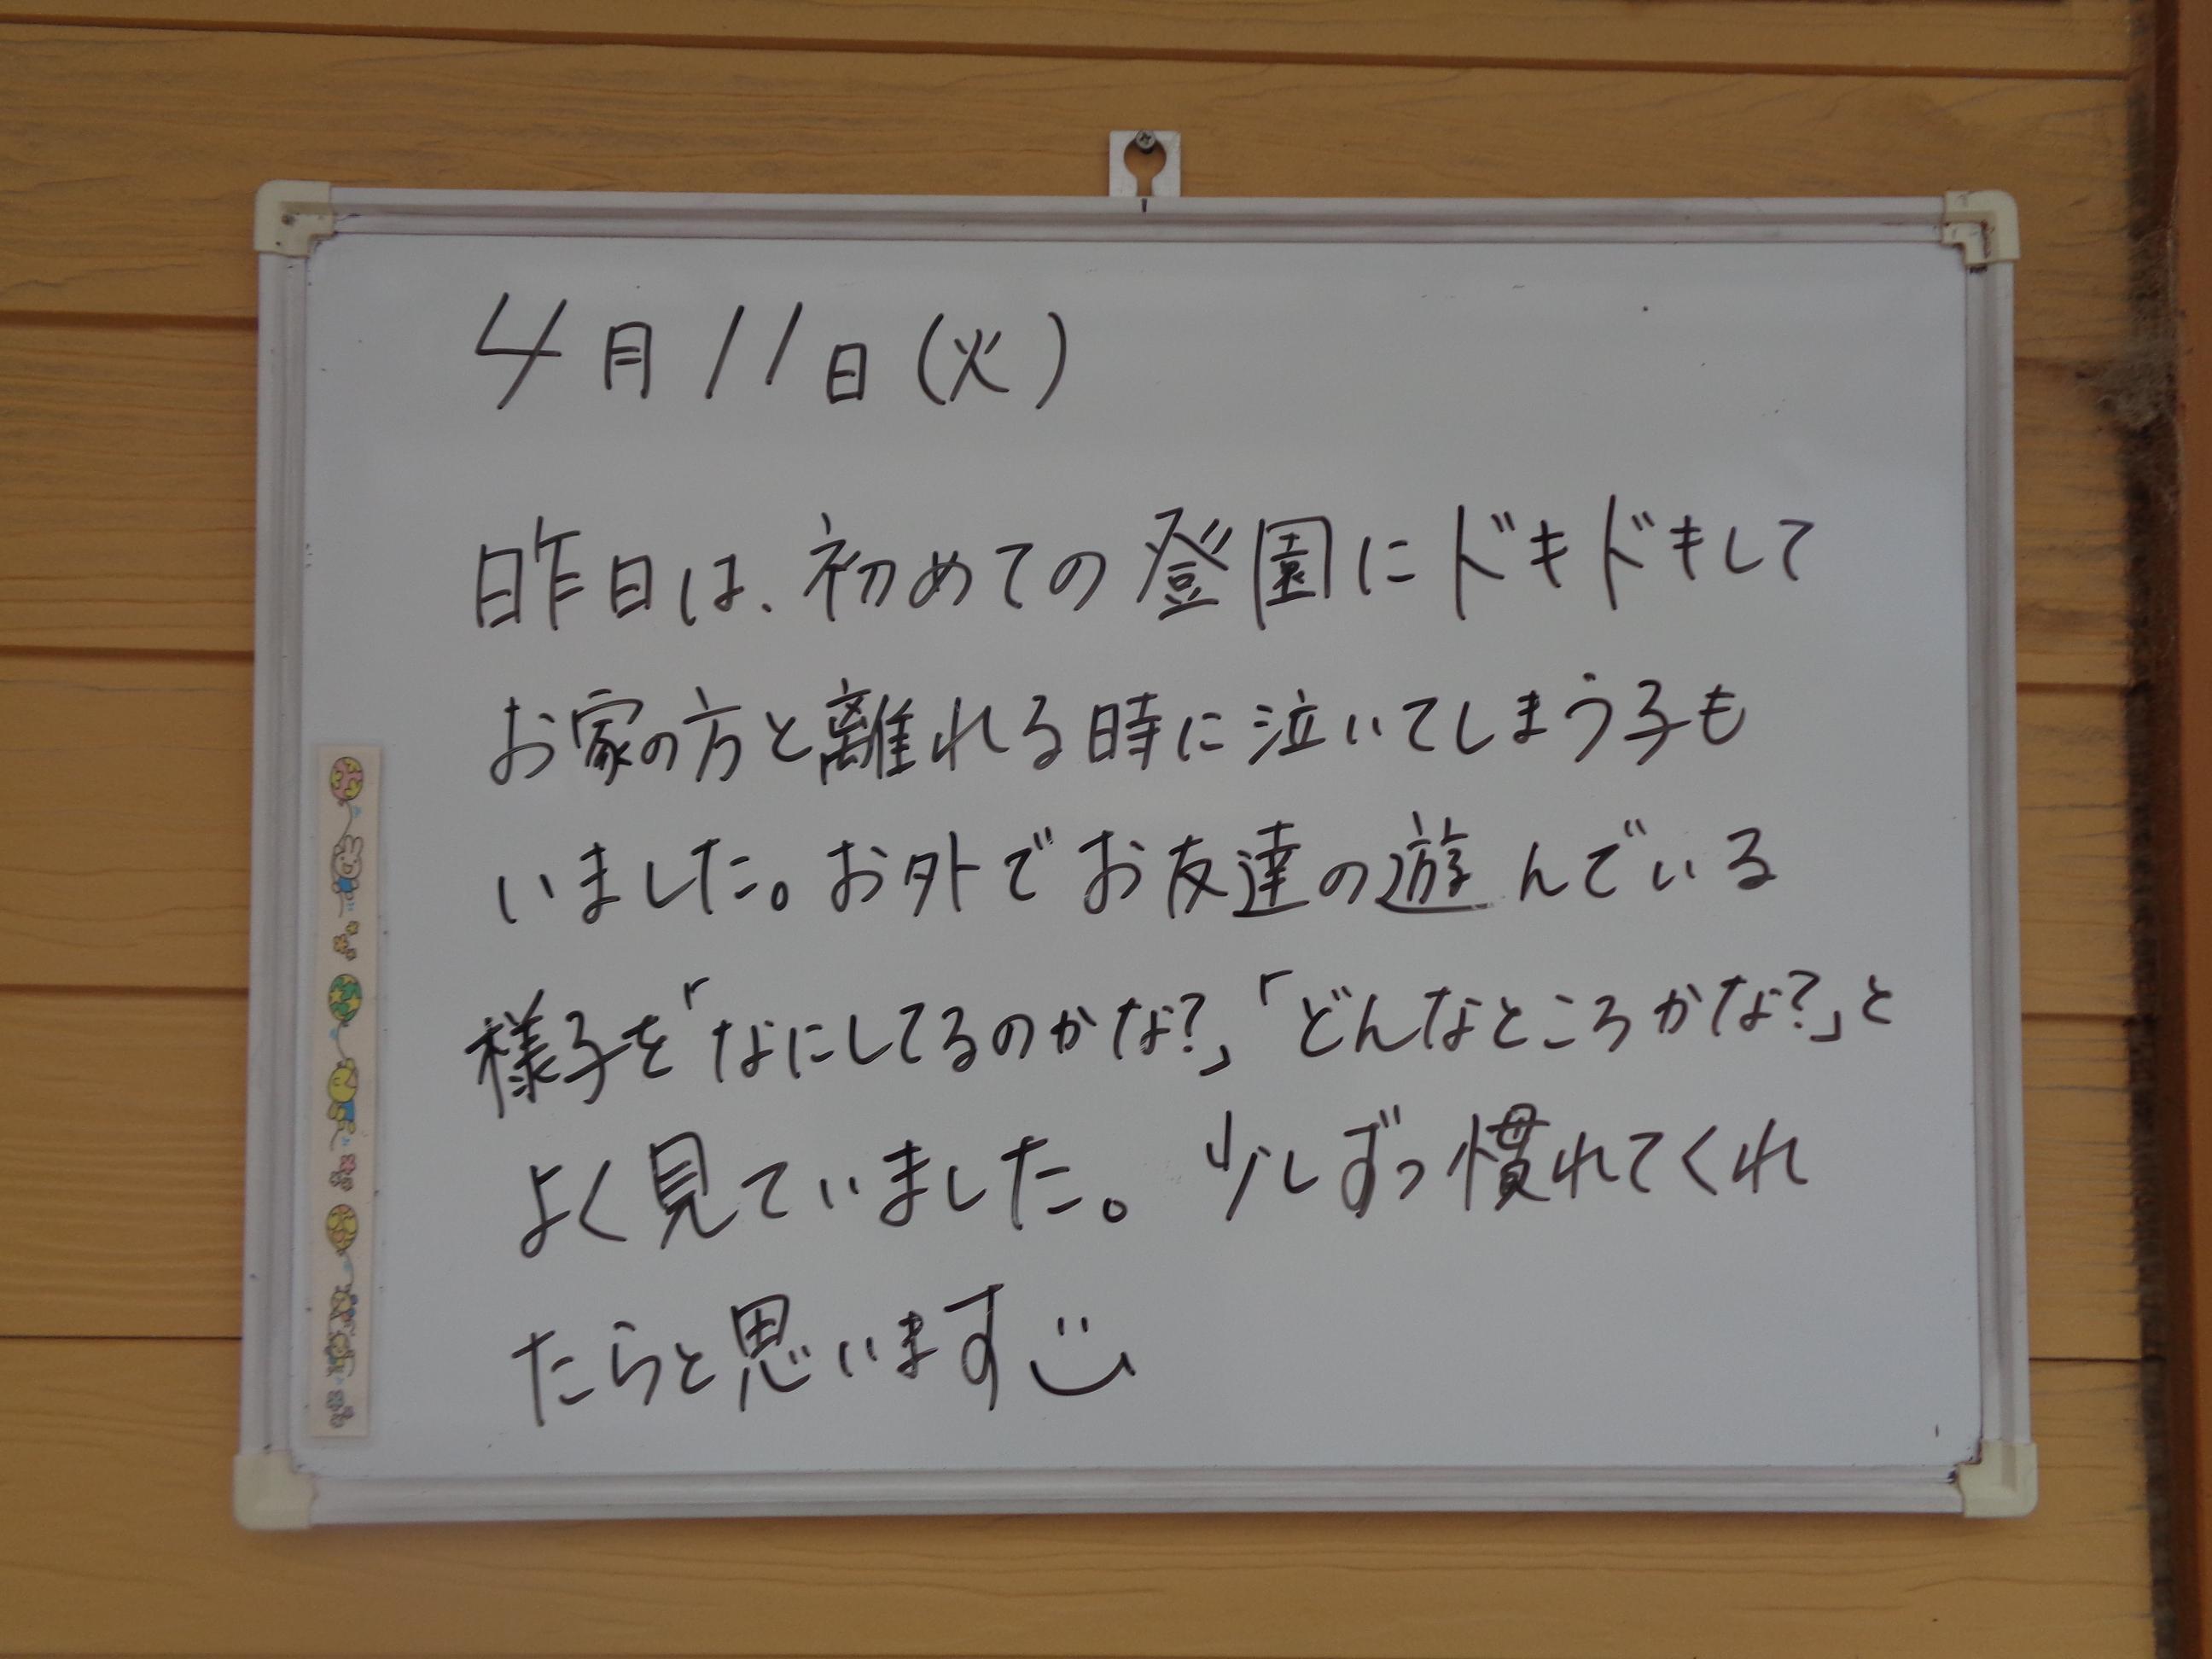 4月11日(火)
昨日は、初めての登園にドキドキして
お家の方と離れる時に泣いてしまう子も
いました。お外でお友達の遊んでいる
様子を「なにしてるのかな?」「どんなところかな?」と
よく見ていました。少しずつ慣れてくれ
たらと思います